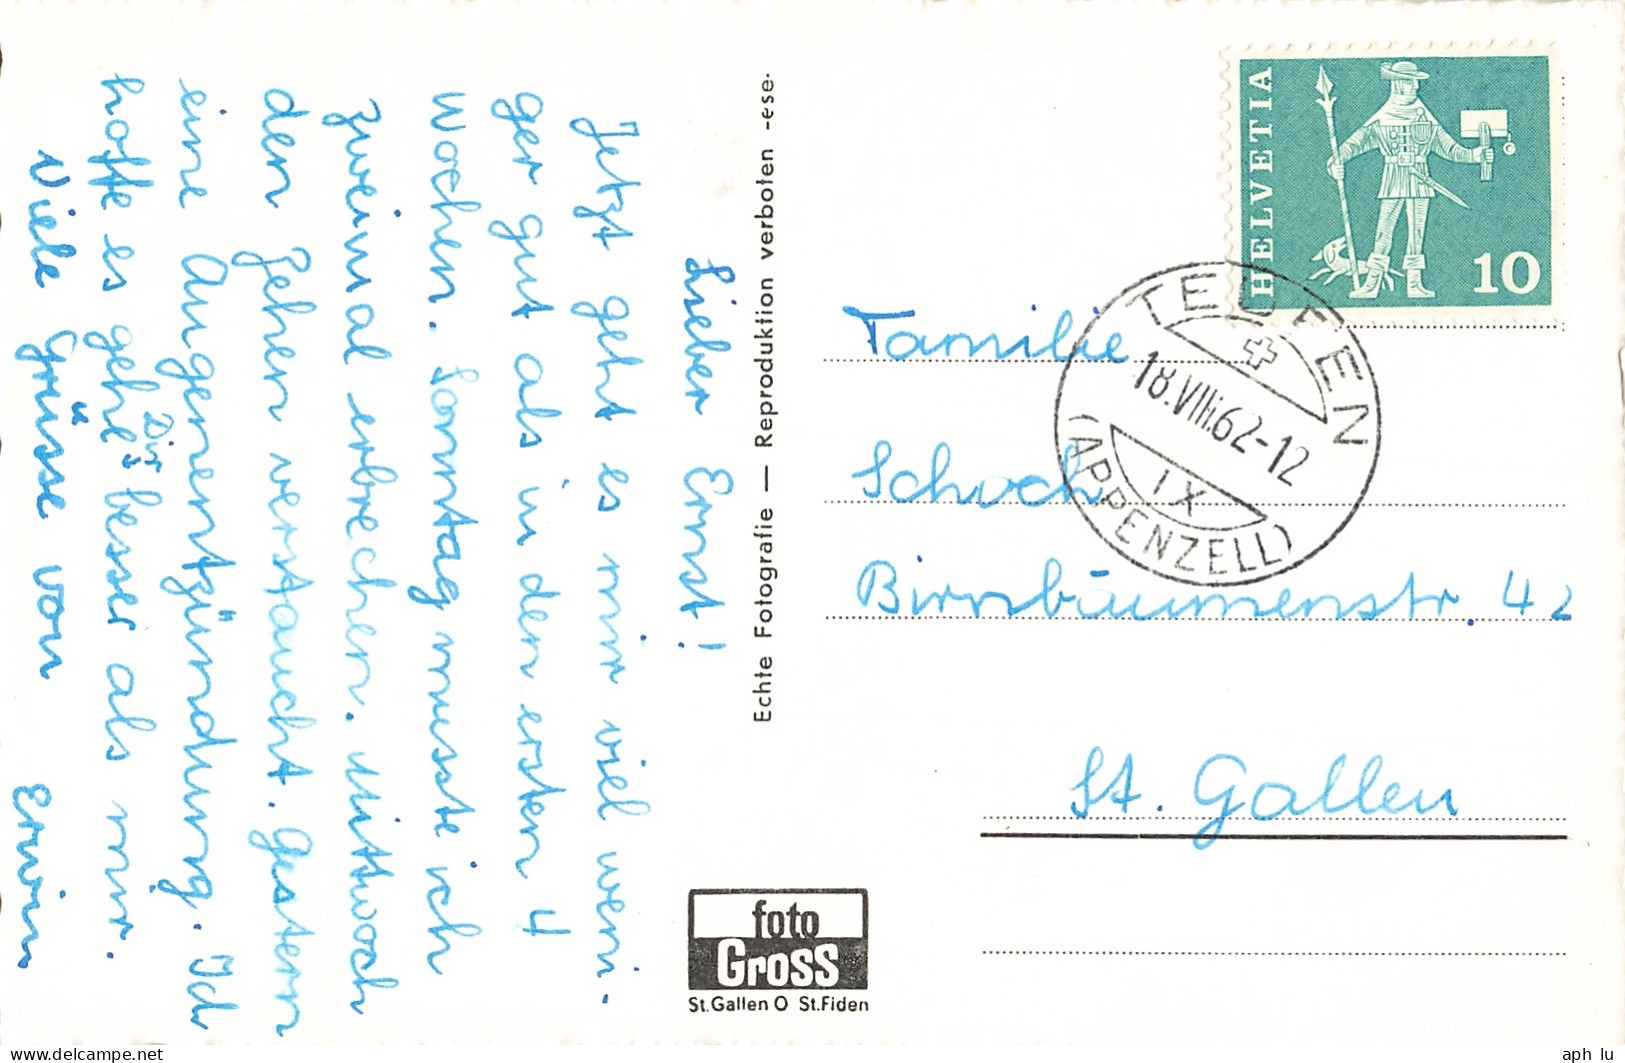 Lieber Ernst!
Jetzt geht es mir viel weni-
ger gut als in den ersten 4
Wochen. Sonntag musste ich
zweimal erbrechen. Mittwoch
den Zehen verstaucht. Gestern
eine Augenentzündung. Ich
hoffe es geht Dir besser als mir.
Viele Grüsse von Erwin
Echte Fotografie — Reproduktion verboten -ese-
HELVETIA
10
TEUFEN
18.VIII.62-12
IX
(APPENZELL)
Familie
Schoch
Birnbäumenstr. 42
St. Gallen
foto
Gross
St.Gallen O St.Fiden
delcampe.net
aph lu